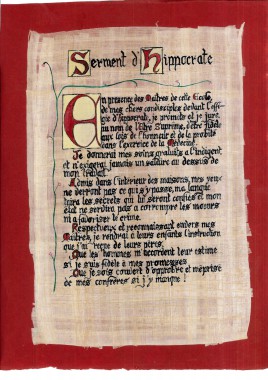 Serment d'Hippocrate
En presence des Maîtres de cette Ecole,
de mes chers condisciples devant l'effi-
gie d'hippocrate, je promets et je jure,
au nom de l'Etre Suprême, d'être fidèle
aux lois de l'honneur et de la probité
dans l'exercice de la Médecine.
Je donnerai mes soins gratuits a l'indigent
et n'exigerai jamais un salaire au dessus de
mon travail.
Admis dans l'interieur des maisons, mes yeux
ne verront pas ce qui s'y passe, ma langue
taira les secrets qui lui seront confiés et mon
état ne servira pas a corrompre les moeurs
ni a favoriser le crime.
Respectueux et reconnaissant envers mes
Maîtres, je rendrai a leurs enfants l'instruction
que j'ai reçue de leurs pères.
Que les hommes m'accordent leur estime
si je suis fidèle à mes promesses
Que je sois couvert d'opprobre et méprisé
de mes confrères si j'y manque !